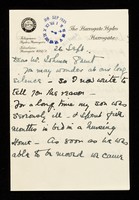 The Harrogate Hydro
Harrogate.
26 Sept.
Dear Mr.
You may wonder at our long
silence – So I now write to
tell you the reason –
For a long time my son was
seriously ill – I spent five
months in bed in a nursing
Home – As soon as he was
able to be moved we came